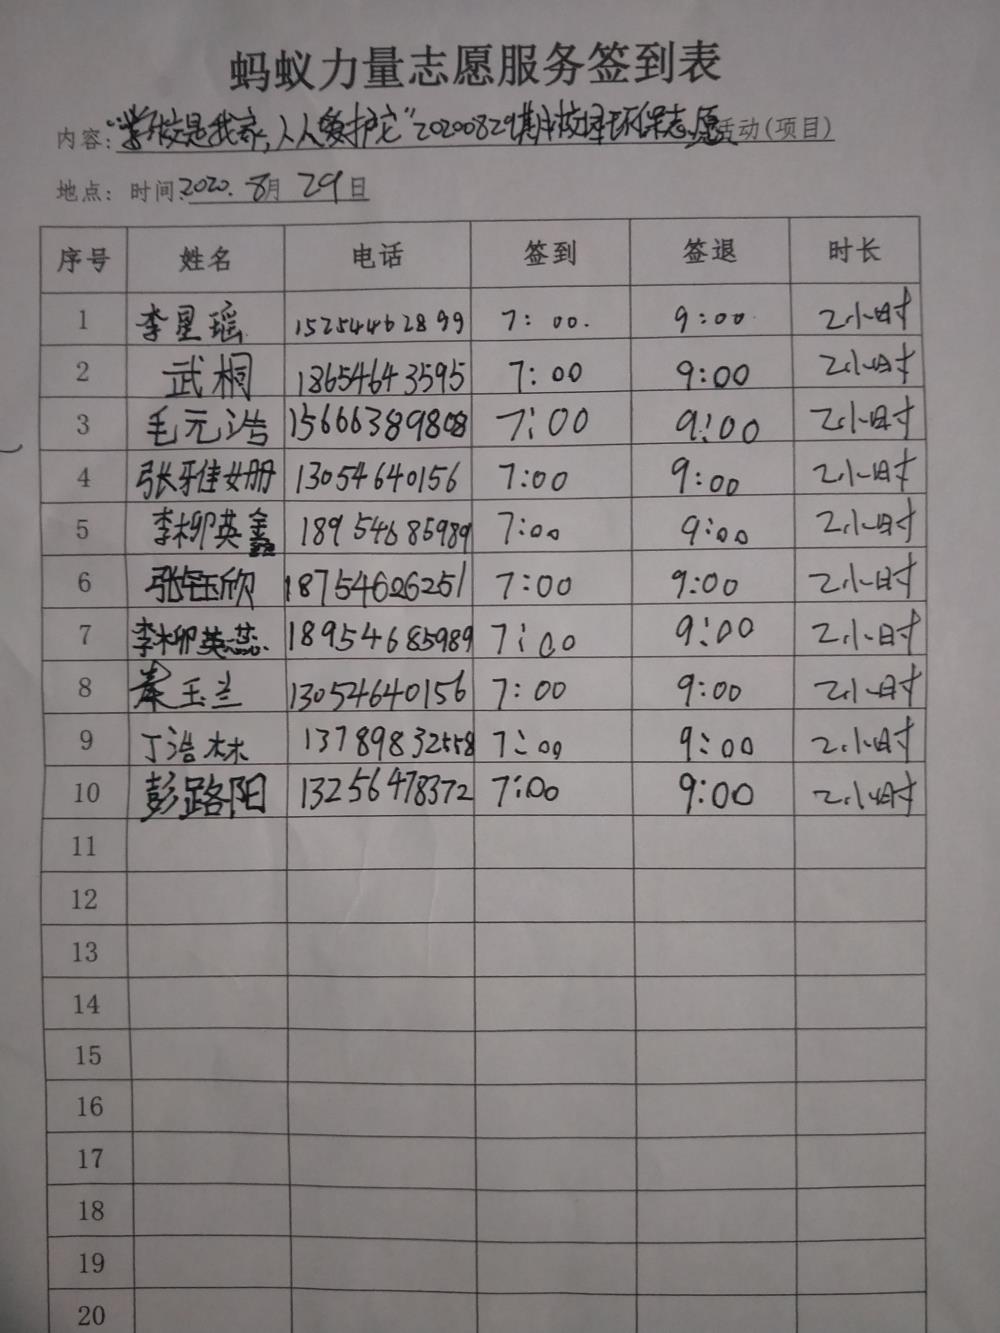 蚂蚁力量志愿服务签到表
内容:"学校是我家,人人爱护它"20200829期校园环保志愿活动(项目)
地点: 时间:2020.8月29日
序号 姓名 电话 签到 签退 时长
1 李星瑶 15254462899 7:00. 9:00 2小时
2 武桐 18654643595 7:00 9:00 2小时
3 毛元浩 15666389808 7:00 9:00 2小时
4 张雅姗 13054640156 7:00 9:00 2小时
5 李柳英鑫 18954685989 7:00 9:00 2小时
6 张钰欣 18754606251 7:00 9:00 2小时
7 李柳英蕊 18954685989 7:00 9:00 2小时
8 秦玉兰 13054640156 7:00 9:00 2小时
9 丁浩林 13789832558 7:00 9:00 2小时
10 彭路阳 13256478372 7:00 9:00 2小时
11
12
13
14
15
16
17
18
19
20